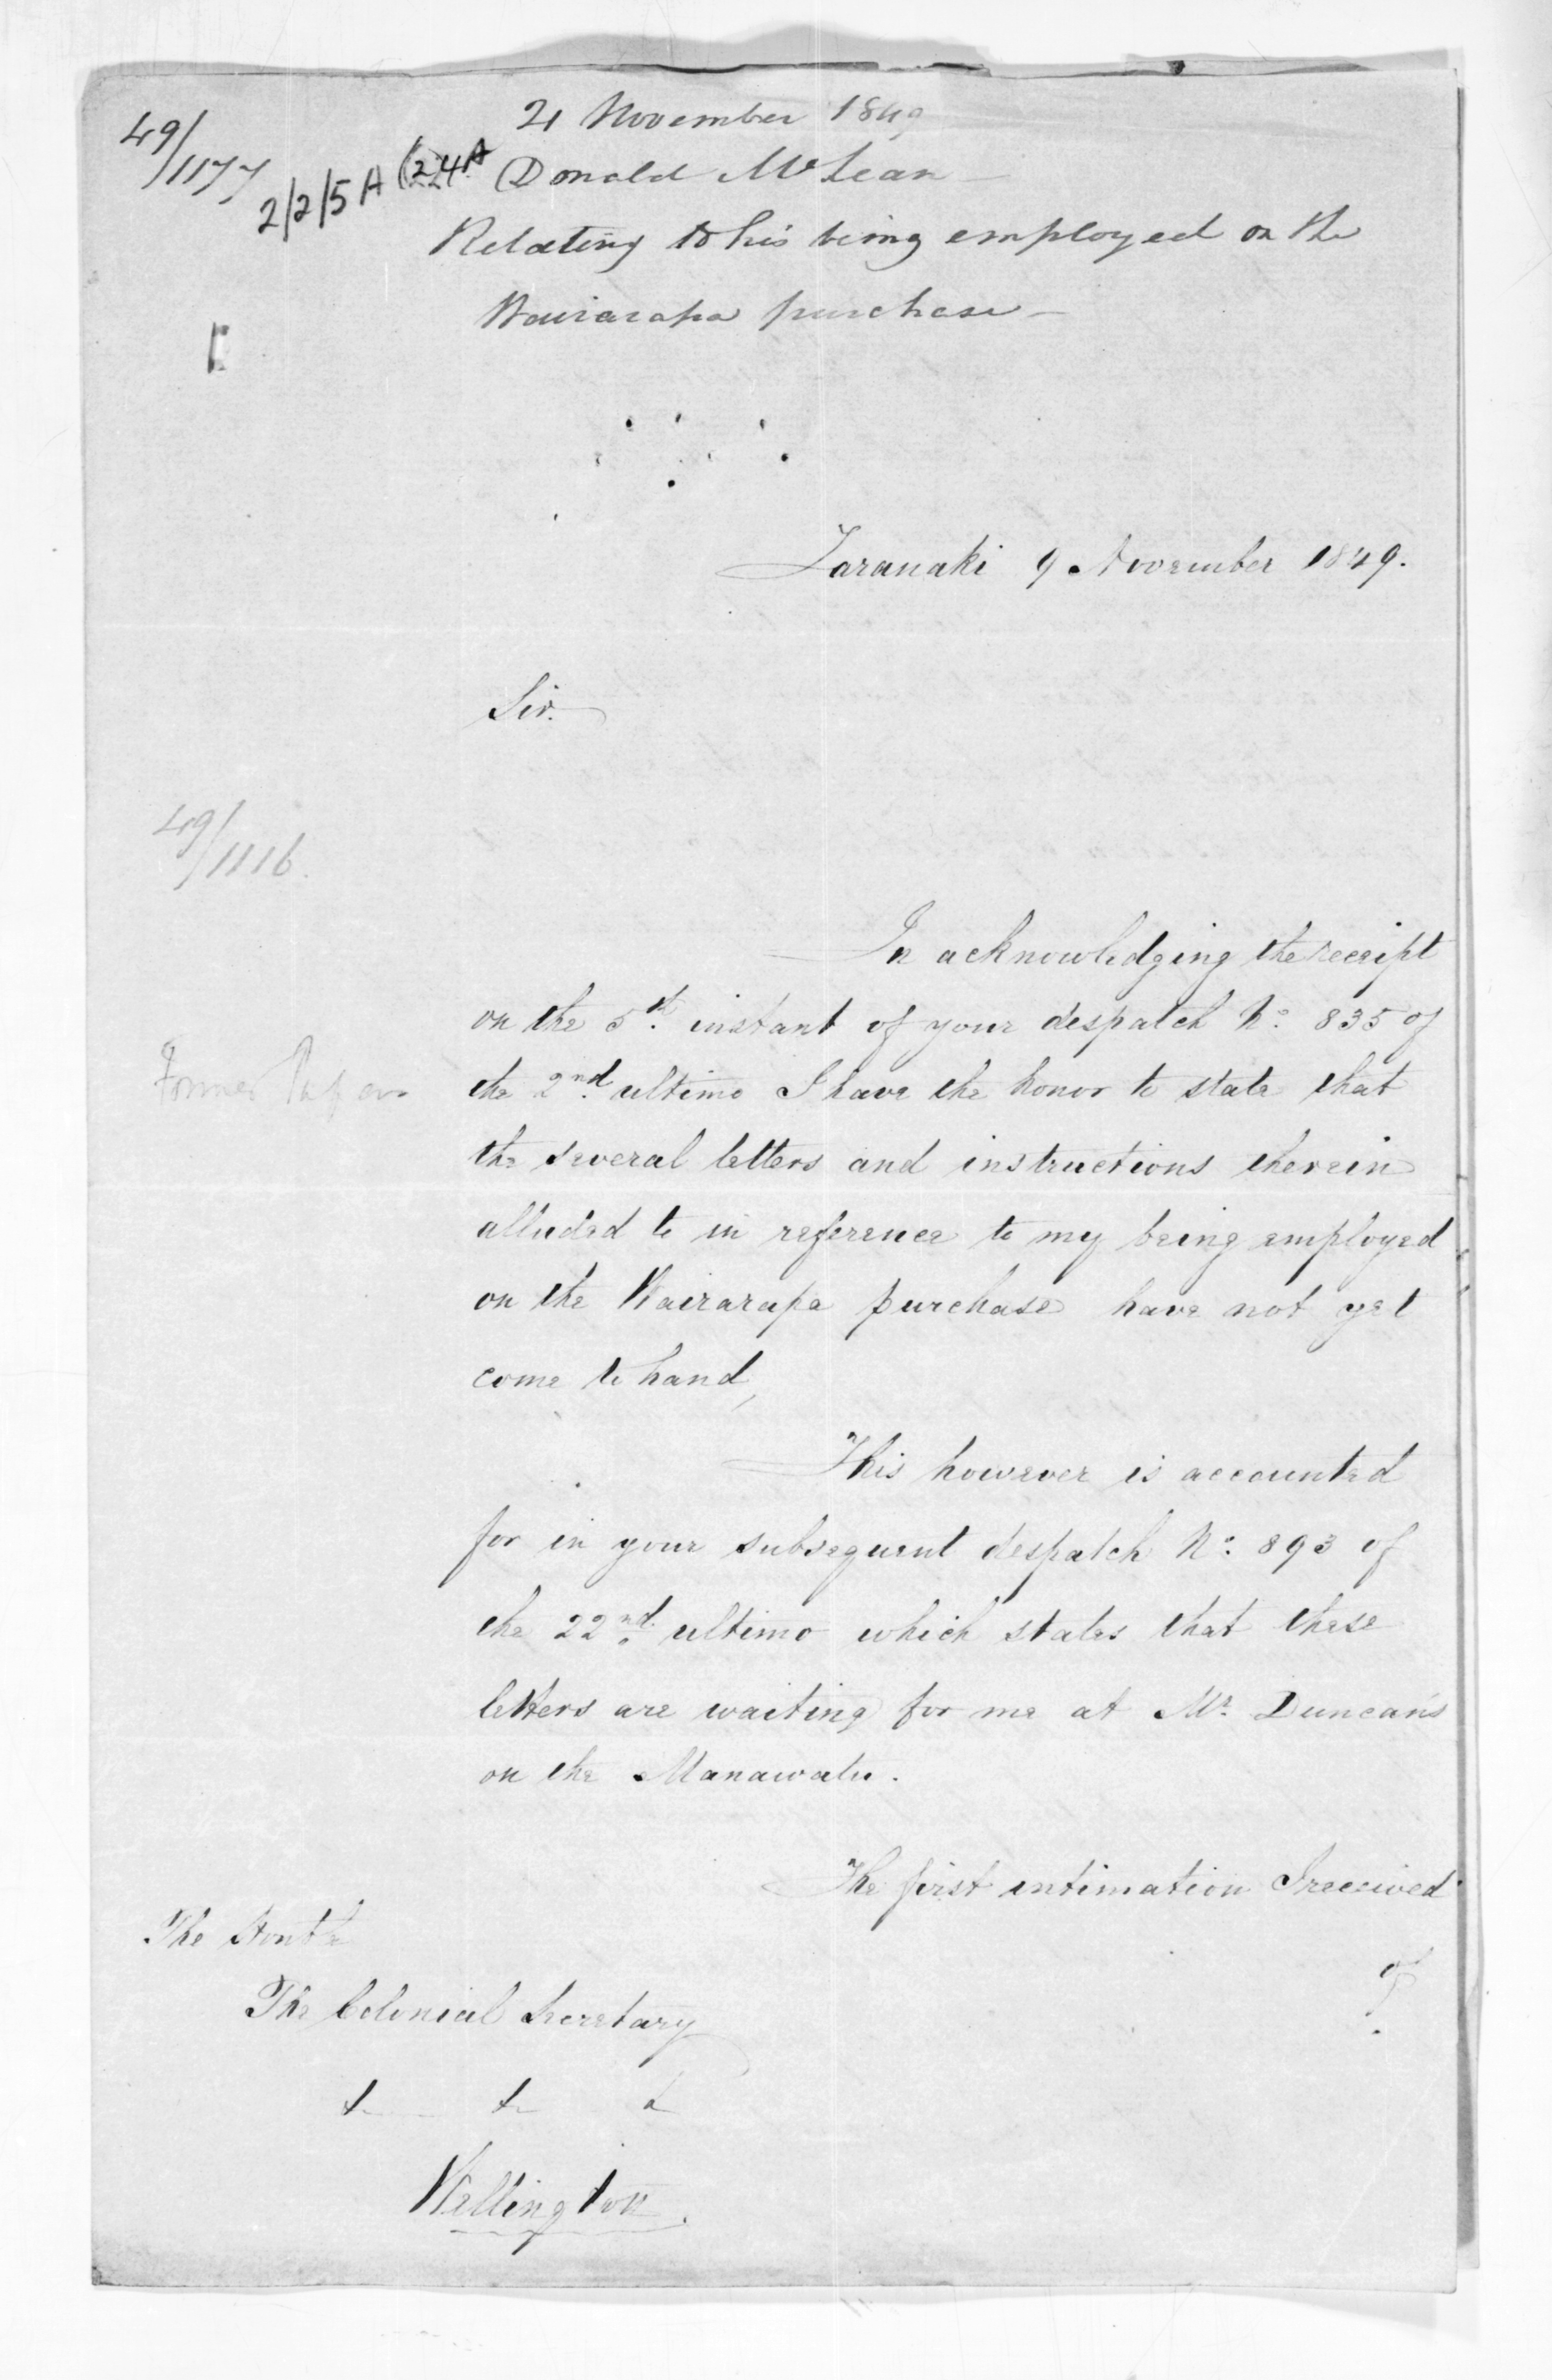 49/1177
2/2/5A (24A
21 November 1849
Donald McLean
Relating to his being employed on the
Wairarapa purchase
Taranaki 9 November 1849.
Sir.
49/1116.
In acknowledging the receipt
on the 5th. instant of your despatch No. 835 of
Former Papers
the 2nd. ultimo I have the honor to state that
the several letters and instructions therein
alluded to in reference to my being employed
on the Wairarapa purchase have not yet
come to hand,
This however is accounted
for in your subsequent despatch No. 893 of
the 22nd. ultimo which states that these
letters are waiting for me at Mr. Duncan's
on the Manawatu.
The first intimation I received
of
The Honble
The Colonial Secretary
Wellington.